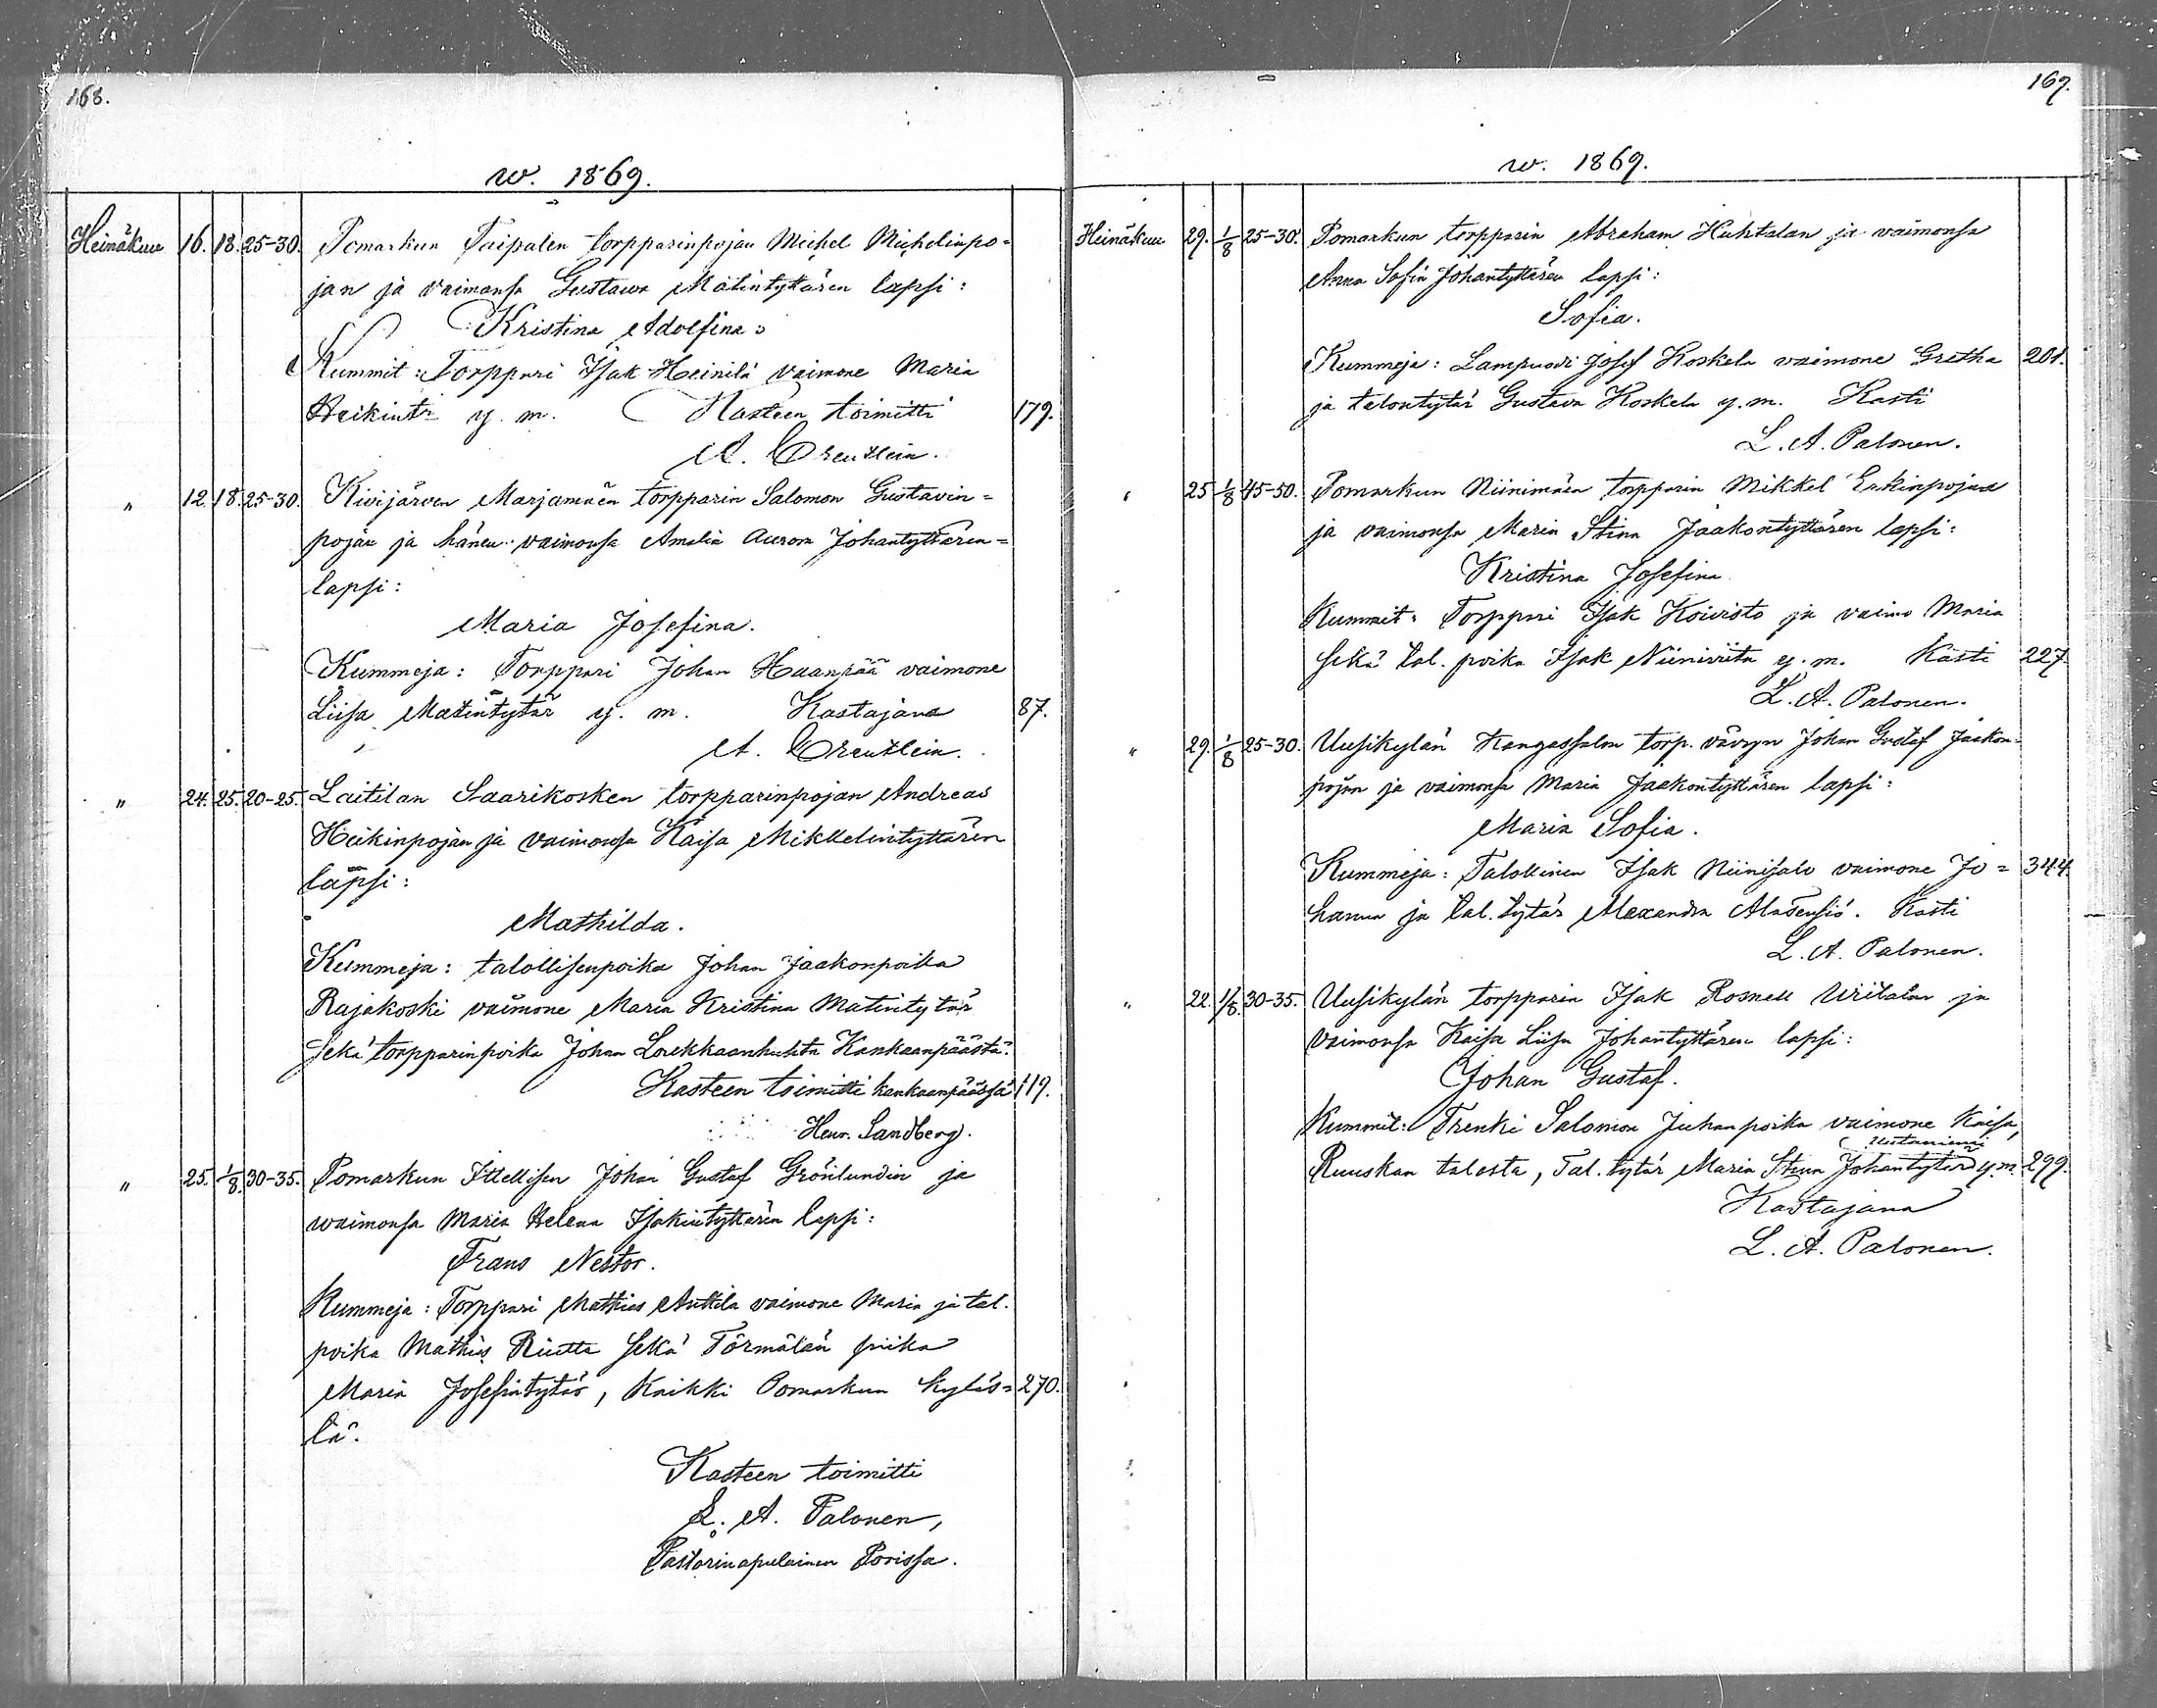 168.
w. 1869.
Heinäkuu 16. 18. 25-30. Pomarkun Taipalen torpparinpojan Michel Michelinpo=
jan ja vaimonsa Gustawa Matintyttären lapsi:
Kristina Adolfina.
Kummit: Torppari Isak Heinilä vaimone Maria
Heikintr y. m. Kasteen toimitti 179.
A. Creutlein.
" 12. 18. 25-30. Kivijärven Marjamäen torpparin Salomon Gustavin=
pojan ja hänen vaimonsa Amalia Aurora Johantyttären=
lapsi:
Maria Josefina.
Kummeja: Torppari Johan Haanpää vaimone
Liisa Matintytär y. m. Kastajana 87.
A. Creutlein.
" 24. 25. 20-25. Laitilan Saarikosken torpparinpojan Andreas
Heikinpojan ja vaimonsa Kaisa Mikkelintyttären
lapsi:
Mathilda.
Kummeja: talollisenpoika Johan Jaakonpoika
Rajakoski vaimone Maria Kristina Matintytär
sekä torpparinpoika Johan Loukkaanhuhta Kankaanpäästä.
Kasteen toimitti kankaanpäässä 119.
Henr. Sandberg.
" 25. 1/8. 30-35. Pomarkun Itellisen Johan Gustaf Grönlundin ja
waimonsa Maria Helena Isakintyttären lapsi:
Frans Nestor.
Kummeja: Torppari Mathias Anttila vaimone Maria ja tal.
poika Mathias Riutta sekä Törmälän piika
Maria Josefintytär, Kaikki Pomarkun kyläs= 270.
tä.
Kasteen toimitti
L. A. Palonen,
Pastorinapulainen Porissa.
169.
w. 1869.
Heinäkuu 29. 1/8 25-30. Pomarkun torpparin Abraham Huhtalan ja vaimonsa
Anna Sofia Johantyttären lapsi:
Sofia.
Kummeja: Lampuodi Josef Koskela vaimone Gretha 201.
ja talontytär Gustava Koskela y. m. Kasti
L. A. Palonen.
" 25 1/8 45-50. Pomarkun Niinimäen torpparin Mikkel Erkinpojan
ja vaimonsa Maria Stina Jaakontyttären lapsi:
Kristina Josefina
Kummit: Torppari Isak Koivisto ja vaimo Maria
sekä tal. poika Isak Niiniviita y. m. Kasti 227
L. A. Palonen.
" 29. 1/8 25-30. Uusikylän Kangassalon torp. vävyn Johan Gustaf Jaakon=
pojan ja vaimonsa Maria Jaakontyttären lapsi:
Maria Sofia.
Kummeja: Talollinen Isak Niinisalo vaimone Jo= 344.
hanna ja tal. tytär Alexandra Kasti
L. A. Palonen.
" 22. 1/8. 30-35. Uusikylän torpparin Isak Rosnell ja
vaimonsa Kaisa Liisa Johantyttären lapsi:
Johan Gustaf.
Kummit: Trenki Salomon Juhanpoika vaimone Kaisa,
Ruuskan talosta, Tal. tytär Maria Stina Johantytär y. m. 299.
Kastajana
L. A. Palonen.